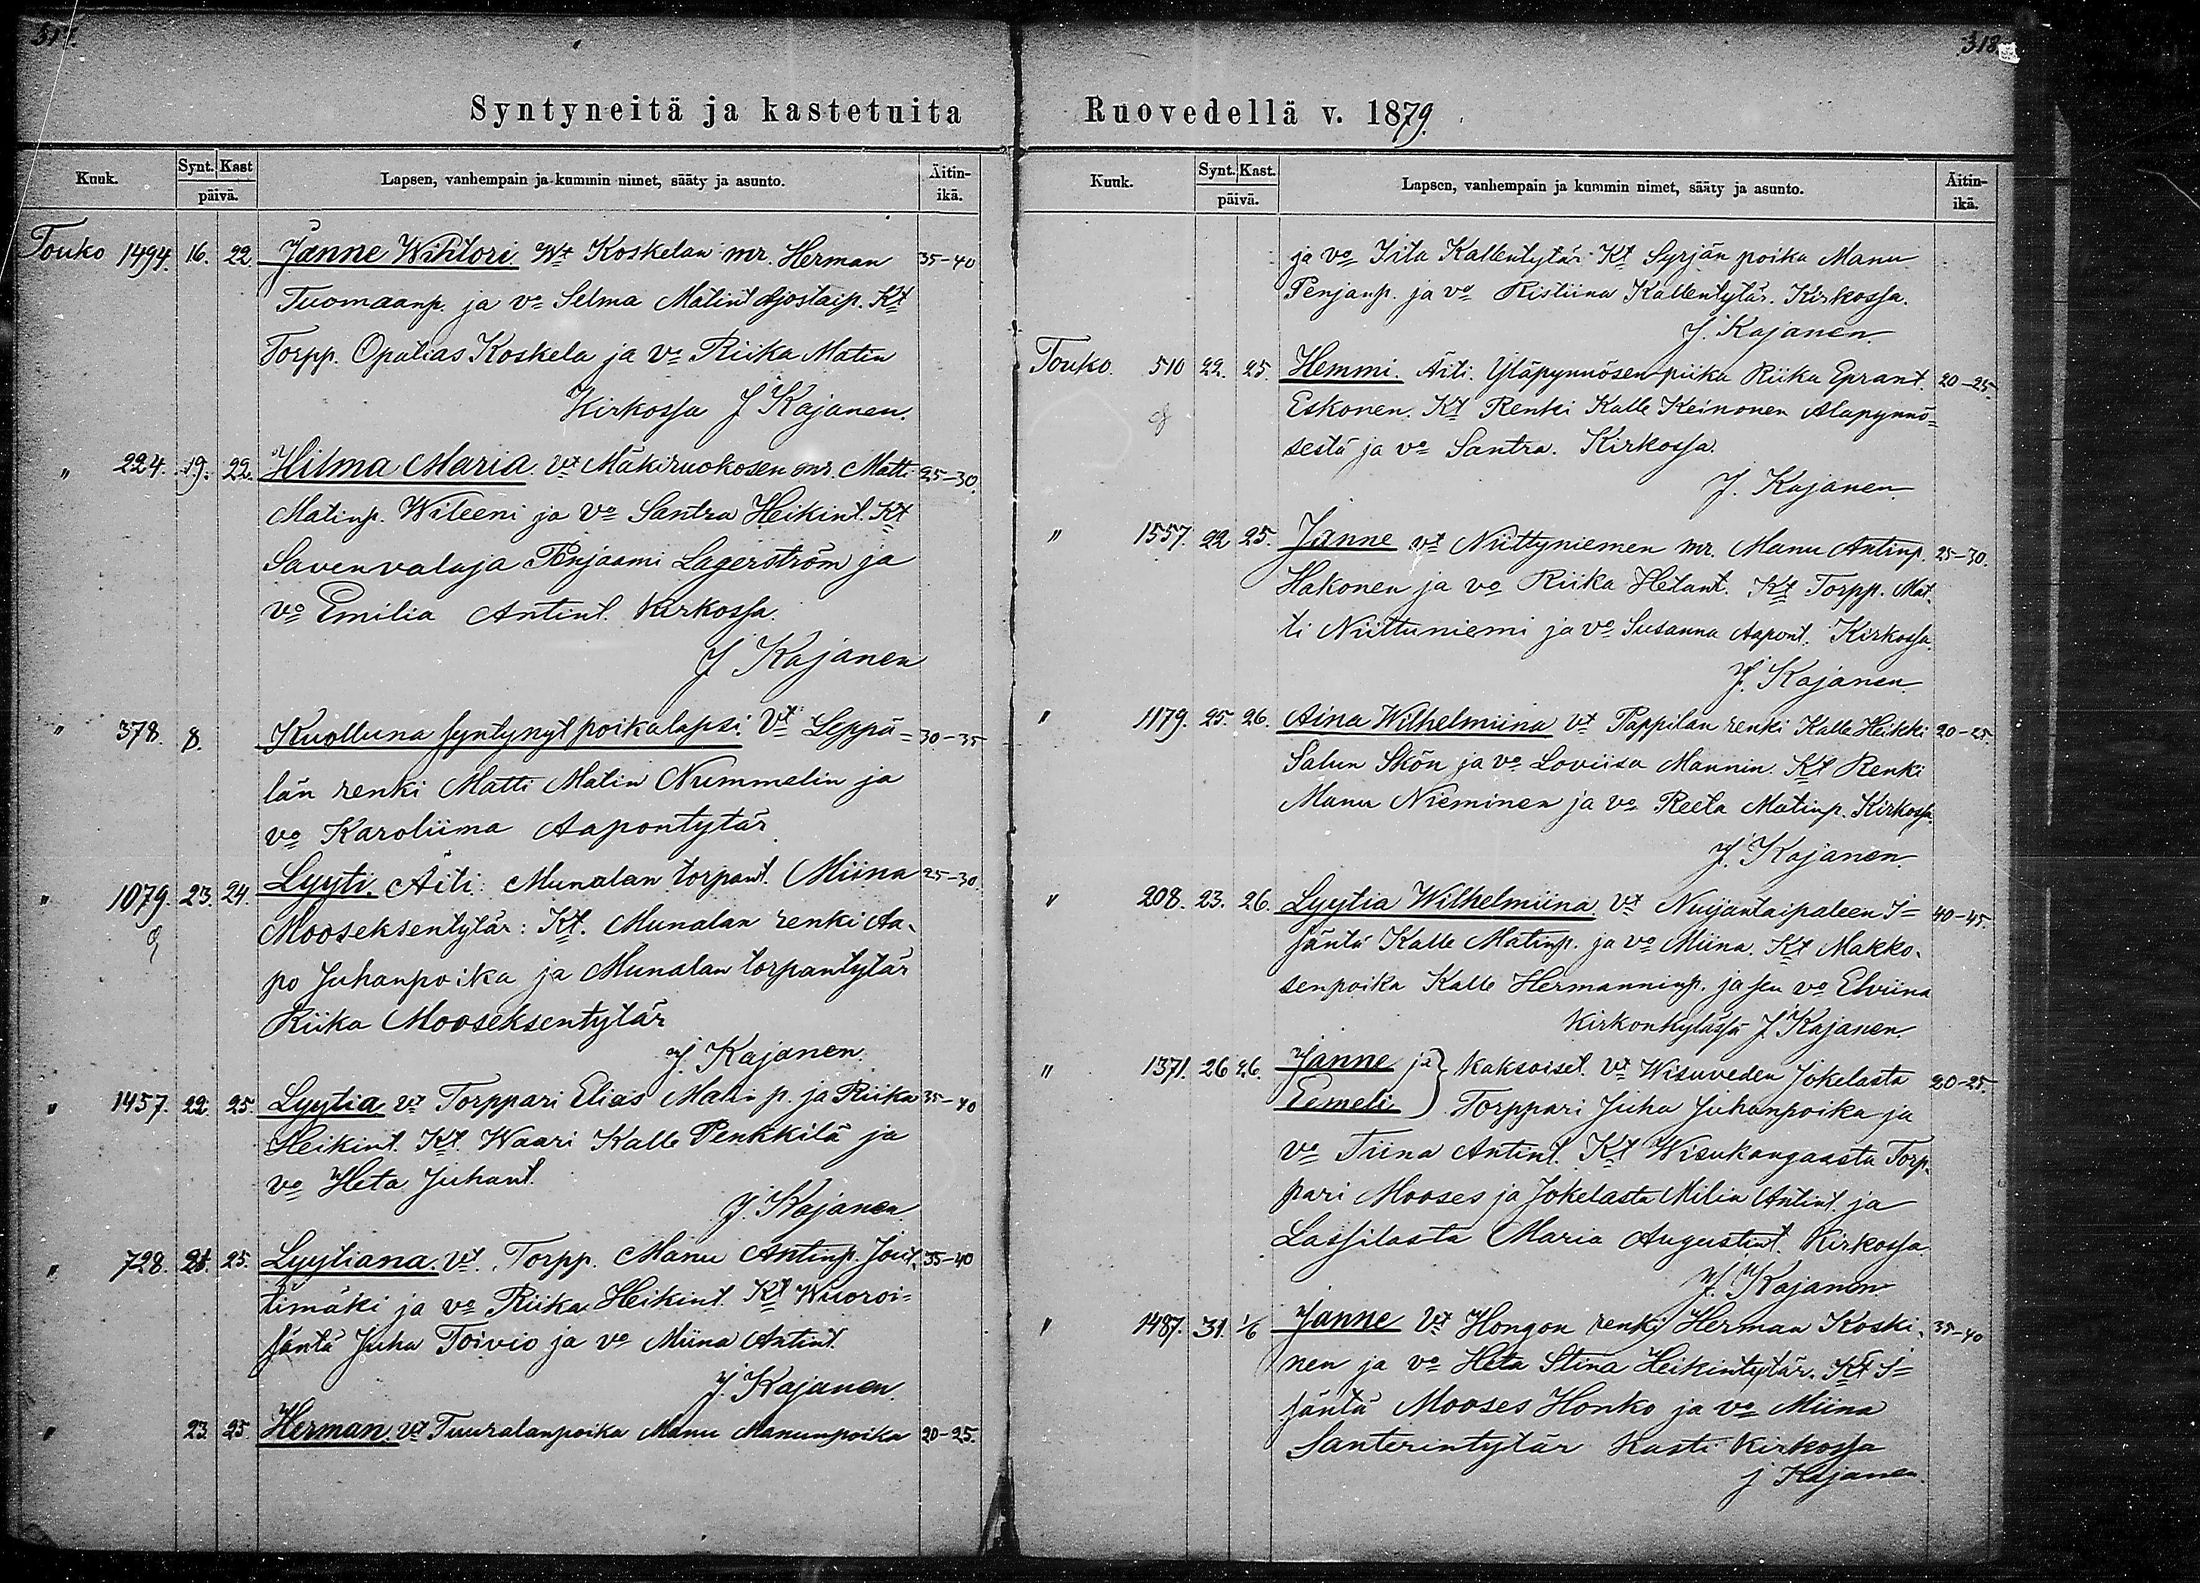 317.
Syntyneitä ja kastetuita
Kuuk.
Synt. Kast
päivä.
Lapsen, vanhempain ja kummin nimet, sääty ja asunto.
Äitin-
ikä.
Touko 1494. 16. 22. Janne Wihtori. Wt Koskelan mr. Herman 35-40
Tuomaanp. ja vo Selma Matint Ajostaip. Kt
Torpp. Opatias Koskela ja vo Riika Matin
Kirkossa J Kajanen.
" 224. 19. 22. Hilma Maria Vt Mäkiruokosen mr. Matti 25-30.
Matinp. Wileeni ja Vo Santra Heikint. Kt
Savenvalaja Penjaami Lagerström ja
vo Emilia Antint. Kirkossa.
J Kajanen
" 378. 8. Kuolluna syntynyt poikalapsi. Vt Leppä= 30-35
län renki Matti Matin Nummelin ja
vo Karoliina Aapontytär
" 1079. 23. 24. Lyyti. Äiti: Munalan torpant. Miina 25-30.
Mooseksentytär: Kt. Munalan renki Aa-
po Juhanpoika ja Munalan torpantytär
Riika Mooseksentytär
J. Kajanen.
" 1457. 22. 25. Lyytia vt Torppari Elias Matin p. ja Riika 35-40
Heikint. Kt. Waari Kalle Penkkilä ja
vo Heta Juhant.
J. Kajanen
" 728. 21. 25. Lyytiana. Vt. Torpp. Manu Antinp. Jout- 35-40
timäki ja vo Riika Heikint. Kt Wuoroi=
säntä Juha Toivio ja vo Miina Antint.
J. Kajanen.
" 23. 25. Herman. Vt Tuuralanpoika Manu Manunpoika 20-25.
318.
Ruovedellä v. 1879.
Kuuk.
Synt. Kast.
päivä.
Lapsen, vanhempain ja kummin nimet, sääty ja asunto.
Äitin-
ikä.
ja vo Iita Kallentytär. Kt Syrjän poika Manu
Penjanp. ja vo Ristiina Kallentytär. Kirkossa.
J. Kajanen.
Touko. 510 22. 25. Hemmi. Äiti. Yläpynnösen piika Riika Eprant. 20-25.
Eskonen. Kt Renki Kalle Keinonen Alapynnö=
sestä ja vo Santra. Kirkossa.
J. Kajanen.
" 1557. 22 25. Janne vt Niittyniemen mr. Manu Antinp. 25-30.
Hakonen ja vo Riika Hetant. Kt Torpp. Mat-
ti Niittuniemi ja vo Susanna Aapont. Kirkossa.
J. Kajanen.
" 1179. 25. 26. Aina Wilhelmiina Vt Pappilan renki Kalle Heikki 20-25.
Salun Skön ja vo Loviisa Mannin. Kt Renki
Manu Nieminen ja vo Reeta Matinp. Kirkossa.
J. Kajanen.
" 208. 23. 26. Lyytia Wilhelmiina Vt Nuijantaipaleen I= 40-45.
säntä Kalle Matinp. ja vo Miina. Kt Makko-
senpoika Kalle Hermanninp. ja sen vo Elviina
Kirkonkylässä J Kajanen.
" 1371. 26 26. Janne ja } Kaksoiset. Vt Wisuveden Jokelasta 20-25.
Eemeli } Torppari Juha Juhanpoika ja
vo Tiina Antint. Kt Wisukangaasta Torp-
pari Mooses ja Jokelasta Milia Antint. ja
Lassilasta Maria Augustint. Kirkossa.
J. Kajanen
" 1487. 31. 1/6 Janne Vt Hongon renki Herman Koski- 35-40
nen ja vo Heta Stina Heikintytär. Kt I=
säntä Mooses Honko ja vo Miina
Santerintytär Kasti Kirkossa
J Kajanen.